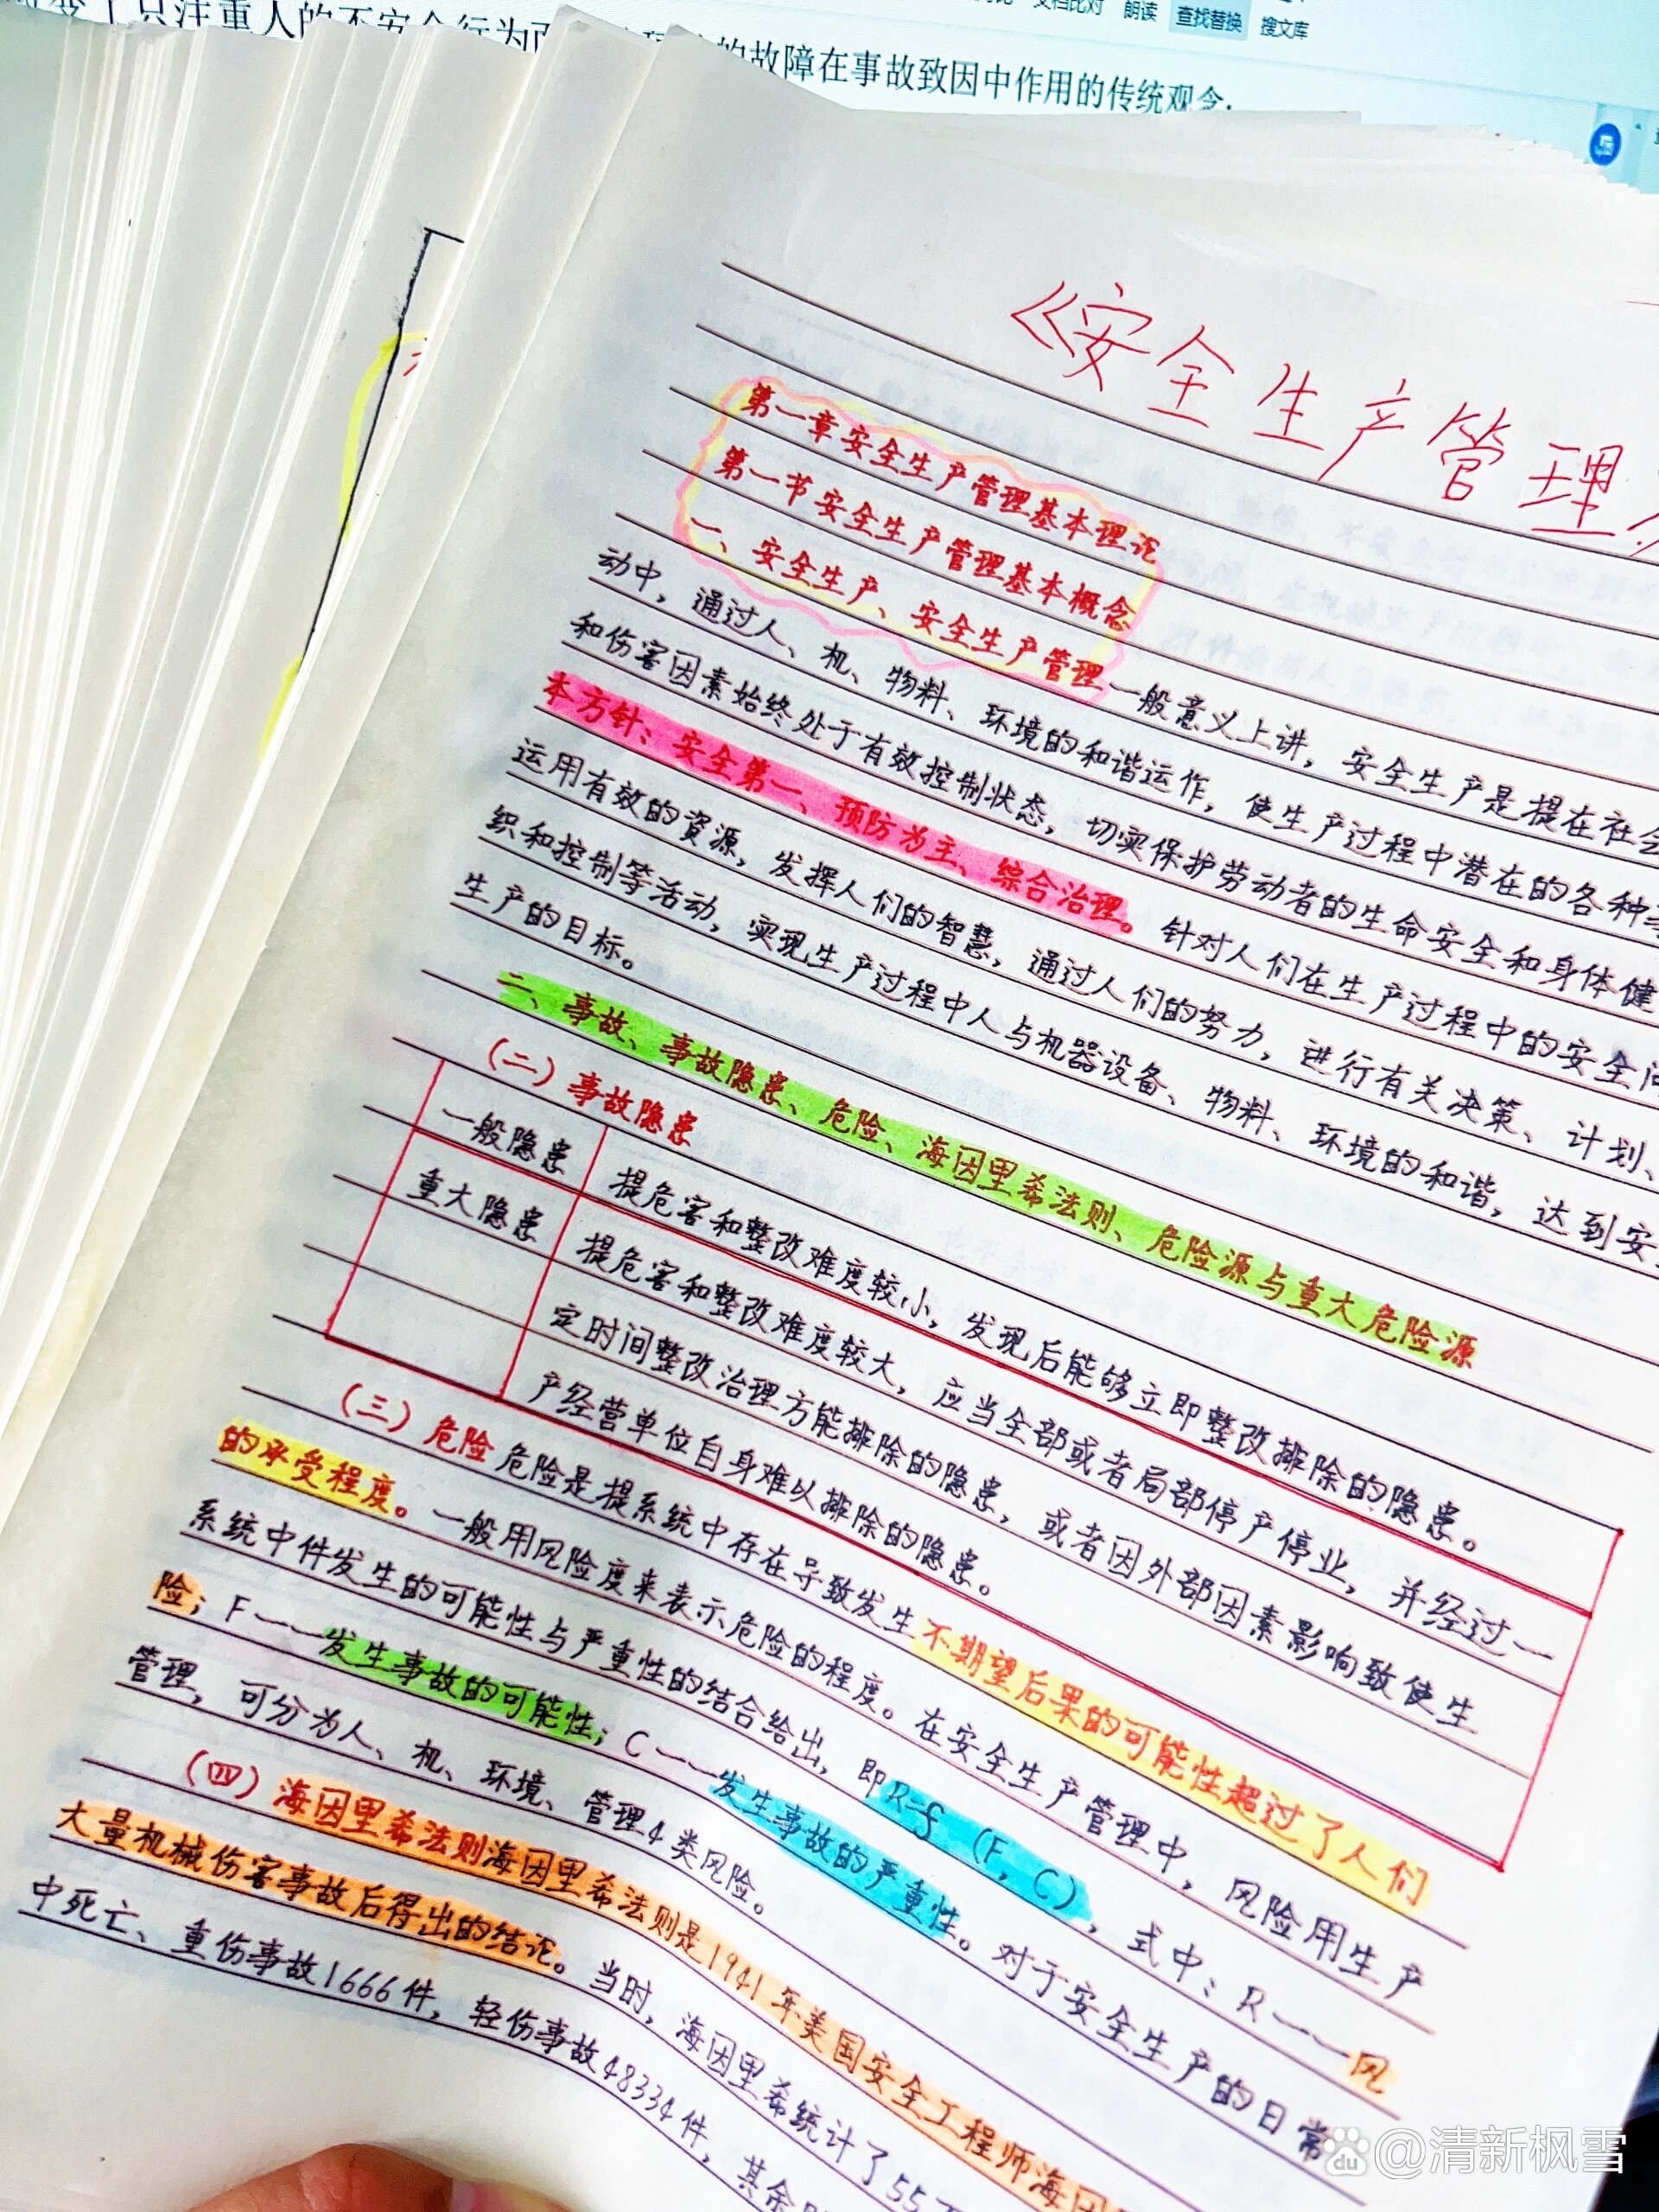 只注重人的不安全行为而
的故障在事故致因中作用的传统观念.
文档比对 朗读 查找替换 搜文库
《安全生产管理
第一章安全生产管理基本理论
第一节安全生产管理基本概念
一、安全生产、安全生产管理一般意义上讲，安全生产是提在社会
动中，通过人、机、物料、环境的和谐运作，使生产过程中潜在的各种
和伤害因素始终处于有效控制状态，切实保护劳动者的生命安全和身体健
本方针：安全第一、预防为主、综合治理。针对人们在生产过程中的安全问
运用有效的资源，发挥人们的智慧，通过人们的努力，进行有关决策、计划、
织和控制等活动，实现生产过程中人与机器设备、物料、环境的和谐，达到安
生产的目标。
二、事故、事故隐患、危险、海因里希法则、危险源与重大危险源
（二）事故隐患
一般隐患 提危害和整改难度较小，发现后能够立即整改排除的隐患。
重大隐患 提危害和整改难度较大，应当全部或者局部停产停业，并经过一
定时间整改治理方能排除的隐患，或者因外部因素影响致使生
产经营单位自身难以排除的隐患。
（三）危险 危险是提系统中存在导致发生不期望后果的可能性超过了人们
的承受程度。一般用风险度来表示危险的程度。在安全生产管理中，风险用生产
系统中件发生的可能性与严重性的结合给出，即R=f（F，C），式中：R——风
险；F——发生事故的可能性；C——发生事故的严重性。对于安全生产的日常
管理，可分为人、机、环境、管理4类风险。
（四）海因里希法则海因里希法则是1941年美国安全工程师海因
大量机械伤害事故后得出的结论。当时，海因里希统计了55万
中死亡、重伤事故1666件，轻伤事故48334件，其余
du @清新枫雪